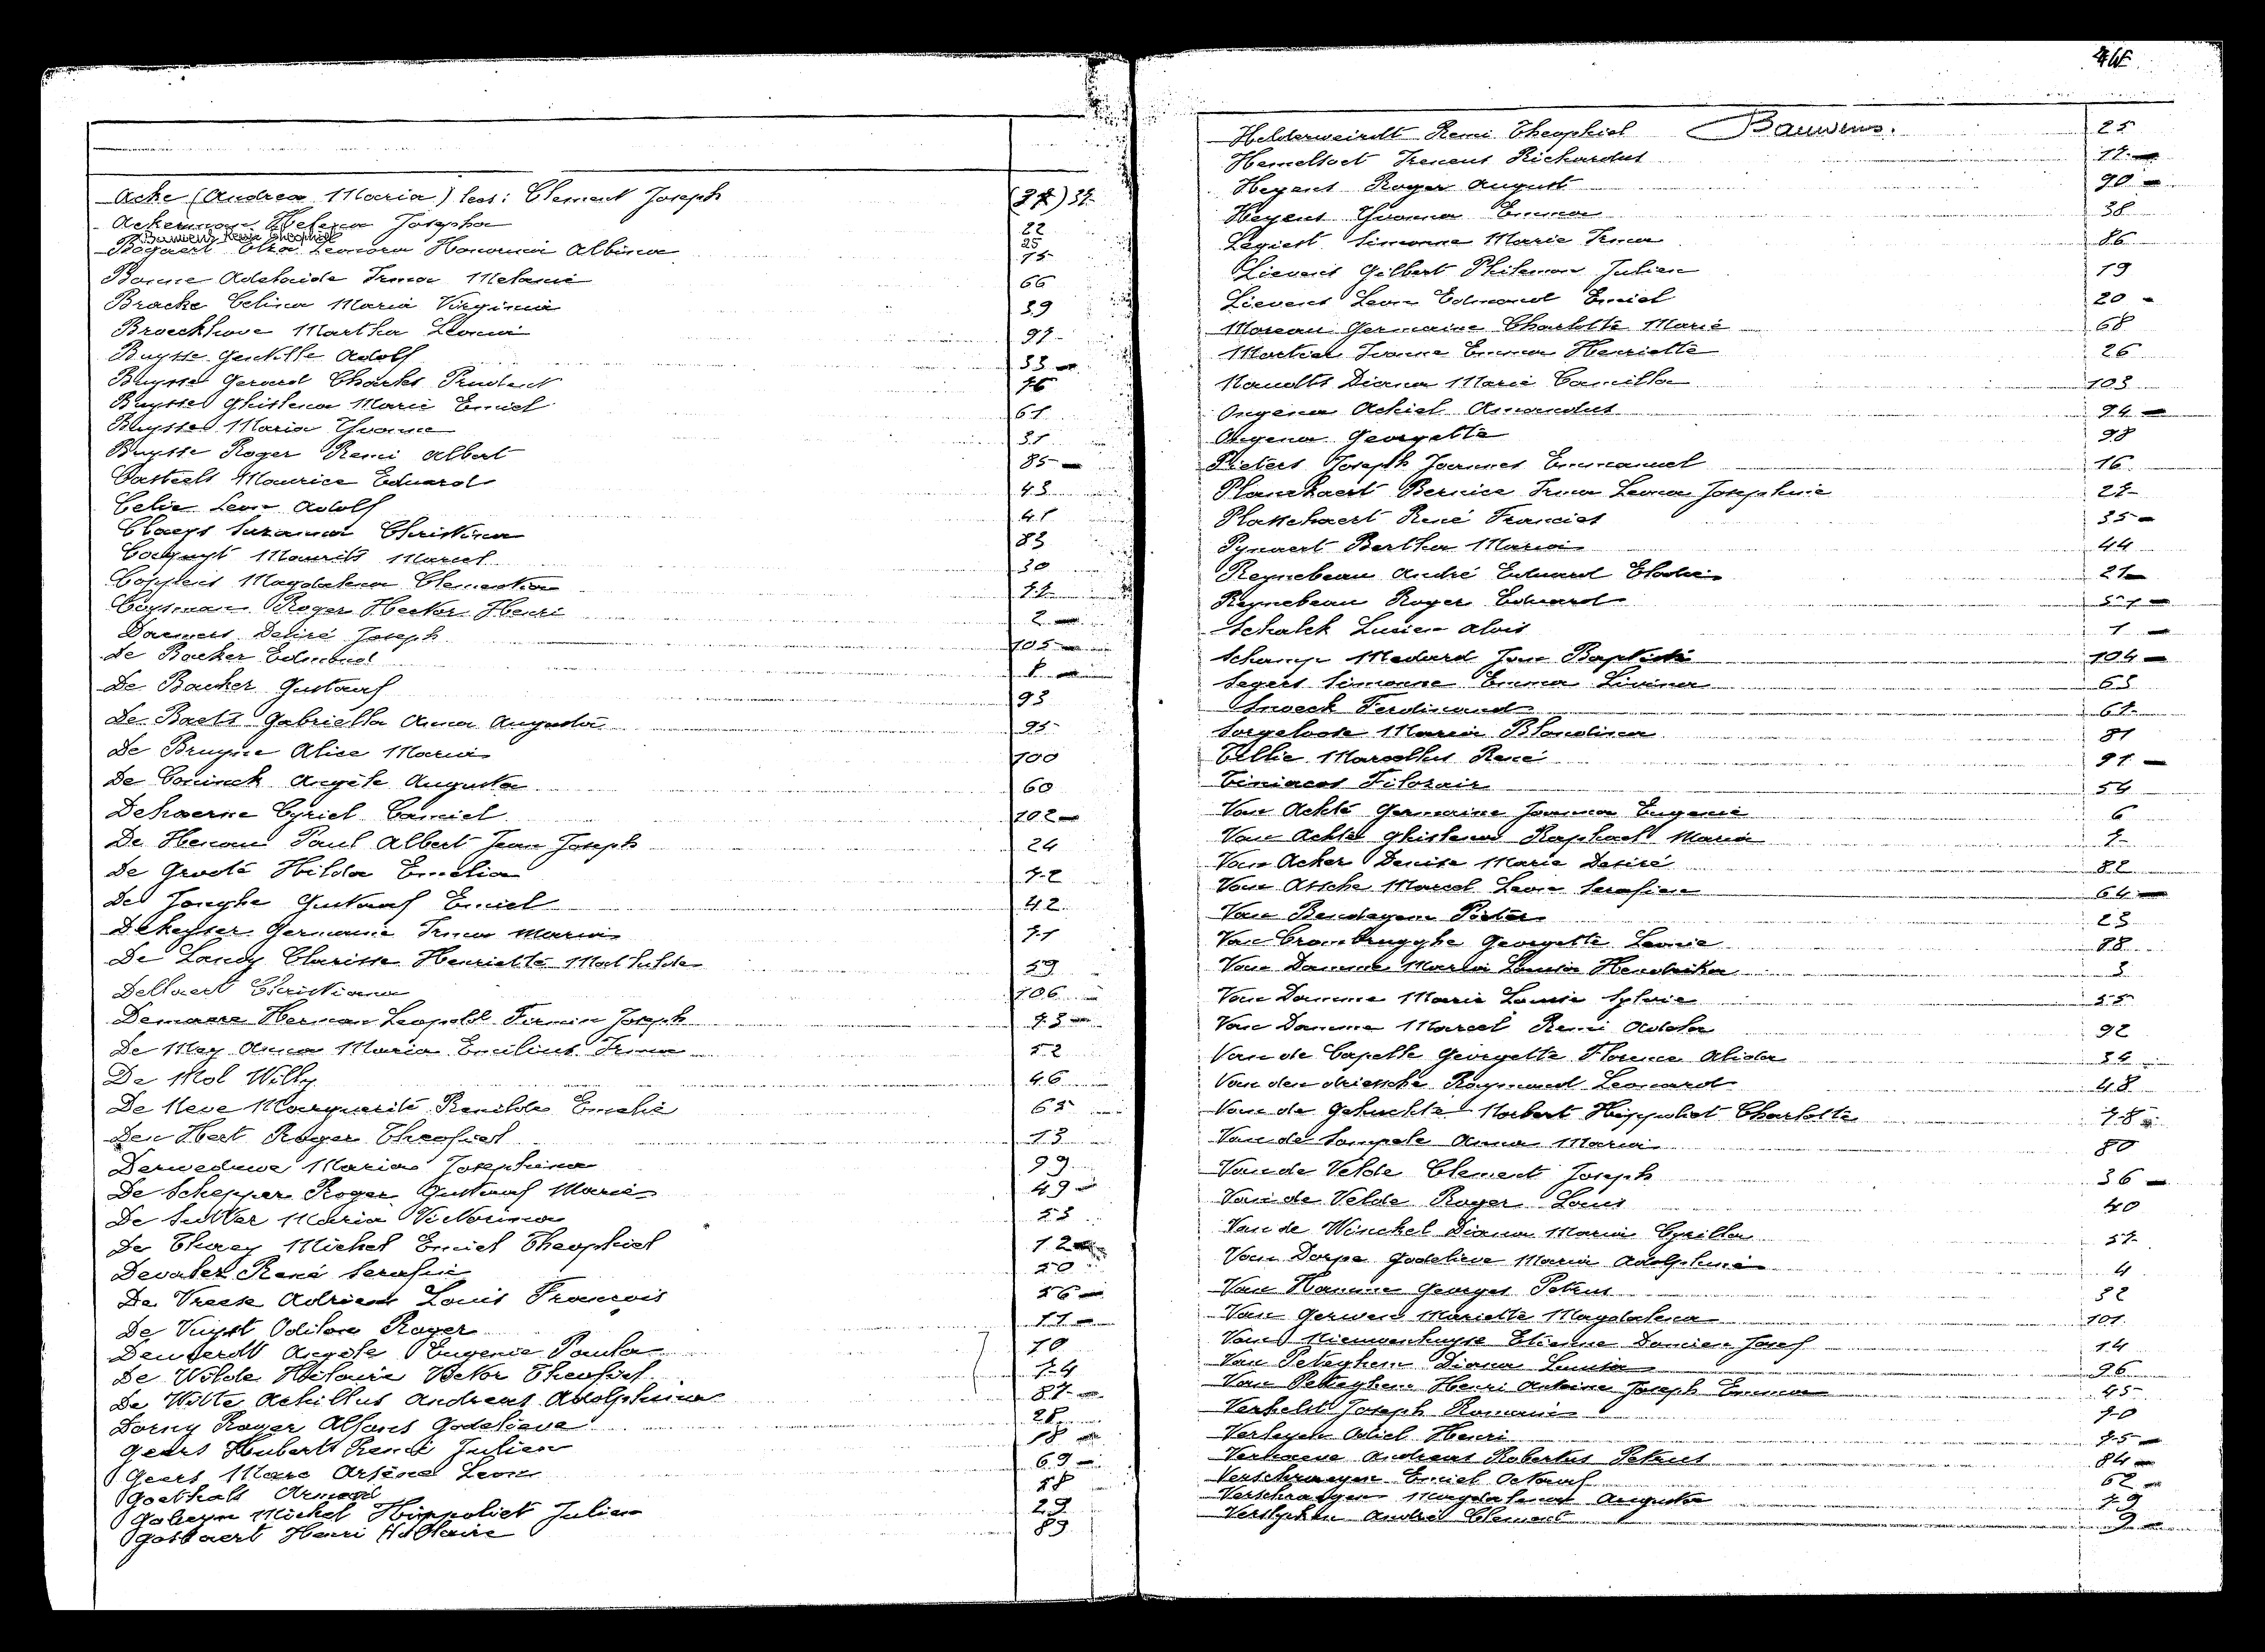 Acke (Andrea Maria) lees: Clement Joseph (37) 37
Ackerman Helena Josepha 22
Bauwens Remi Theophiel 25
Bogaert Elza Leonora Honorina Albina 15
Bonne Adelaide Irma Melanie 66
Bracke Celina Maria Virginia 39
Broeckhove Martha Leonia 97
Buysse Gentille Adolf 33
Buysse Gerard Charles Prudent 76
Buysse Ghislena Marie Emiel 61
Buysse Maria Yvonne 31
Buysse Roger Remi Albert 85
Casteels Maurice Eduard 43
Celie Leon Adolf 41
Claeys Suzanna Christina 83
Cocquyt Maurits Marcel 30
Coppens Magdalena Clementia 77
Coysman Roger Hector Henri 2
Daemers Desiré Joseph 105
De Backer Edmond 8
De Backer Gustaaf 93
De Baets Gabriella Anna Augusta 95
De Bruyne Alice Maria 100
De Coninck Angèle Augusta 60
Dehaerne Cyriel Camiel 102
De Henau Paul Albert Jean Joseph 24
De Groote Hilda Emelia 72
De Jonghe Gustaaf Emiel 42
Dekeyser Germanie Irma Maria 71
De Landy Clarisse Henriette Mathilde 59
Dellaert Christiana 106
Demaere Herman Leopold Firmin Joseph 73
De Mey Anna Maria Emilius Irma 52
De Mol Willy 46
De Neve Marguerite Renilde Emelie 65
Den Hert Roger Theofiel 13
Derweduwe Maria Josephina 99
De Schepper Roger Gustaaf Marie 49
De Sutter Maria Victorina 53
De Thaey Michel Emiel Theophiel 12
Devater René Serafin 50
De Vreese Adrien Louis François 56
De Vuyst Odilon Roger 11
Deweerdt Angèle Eugenie Paula 10
De Wilde Hilaire Victor Theofiel 74
De Witte Achillus Andreas Adolphina 87
Dorny Roger Alfons Godelieve 28
Geers Hubert René Julien 18
Geers Marc Arsène Leon 69
Goethals Armand 58
Goheyn Michel Hippoliet Julien 29
Gossaert Henri Hillaire 89
Helderweirdt Remi Theophiel Bauwens. 25
Hemelsoet Ireneus Richardus 17
Heyens Roger August 90
Heyens Yvonna Emma 38
Legiest Simonne Marie Irma 86
Lievens Gilbert Philemon Julien 19
Lievens Leon Edmond Emiel 20
Moreau Germaine Charlotte Marie 68
Martier Ivonne Emma Henriette 26
Nauelts Diana Marie Camilla 103
Ongena Achiel Amandus 94
Ongena Georgette 98
Pieters Joseph Joannes Emmanuel 16
Planckaert Bernice Irma Leona Josephine 27
Plasschaert René Francies 35
Pynaert Bertha Maria 44
Reynebeau André Eduard Elodie 21
Reynebeau Roger Eduard 51
Schalck Lucien Alois 1
Schamp Medard Jan Baptiste 104
Segers Simonne Emma Livina 63
Snoeck Ferdinand 67
Sorgeloose Maria Blondina 81
Tellie Marcellus René 91
Filozair 54
Van Ackte Germaine Joanna Eugenie 6
Van Ackte Ghislena Raphael Maria 7
Van Acker Denise Marie Desiré 82
Van Assche Marcel Leon Serafien 64
Van Bendegem Pieter 23
Van Crombrugghe Georgette Leonie 88
Van Damme Maria Louisa Hendrika 3
Van Damme Marie Louise Sylvie 55
Van Damme Marcel Remi Adela 92
Van de Capelle Georgette Florence Alida 34
Van den driessche Raymond Leonard 48
Van de Gehuchte Norbert Hippoliet Charlotte 78
Van de Sompele Anna Maria 80
Van de Velde Clement Joseph 36
Van de Velde Roger Louis 40
Van de Winckel Diana Maria Cyrilla 57
Van Dorpe Godelieve Maria Adolphina 4
Van Hamme Georges Petrus 32
Van Gerwen Mariette Magdalena 101
Van Nieuwenhuyse Etienne Damien Josef 14
Van Peteghem Diana Louisa 96
Van Peteghem Henri Antoine Joseph Emma 45
Verhelst Joseph Romanie 70
Verleyen Odiel Henri 75
Verhoeve Andreas Robertus Petrus 84
Verschraegen Emiel Octaaf 62
Verschraegen Magdalena Augusta 79
Verslyken André Clement 9